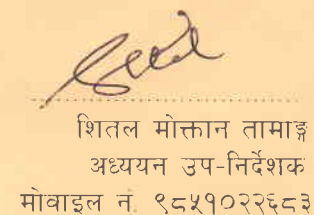 शितल मोक्तान तामाङ्ग
अध्ययन उप-निर्देशक
मोवाइल नं. ९८५१०२२६८३